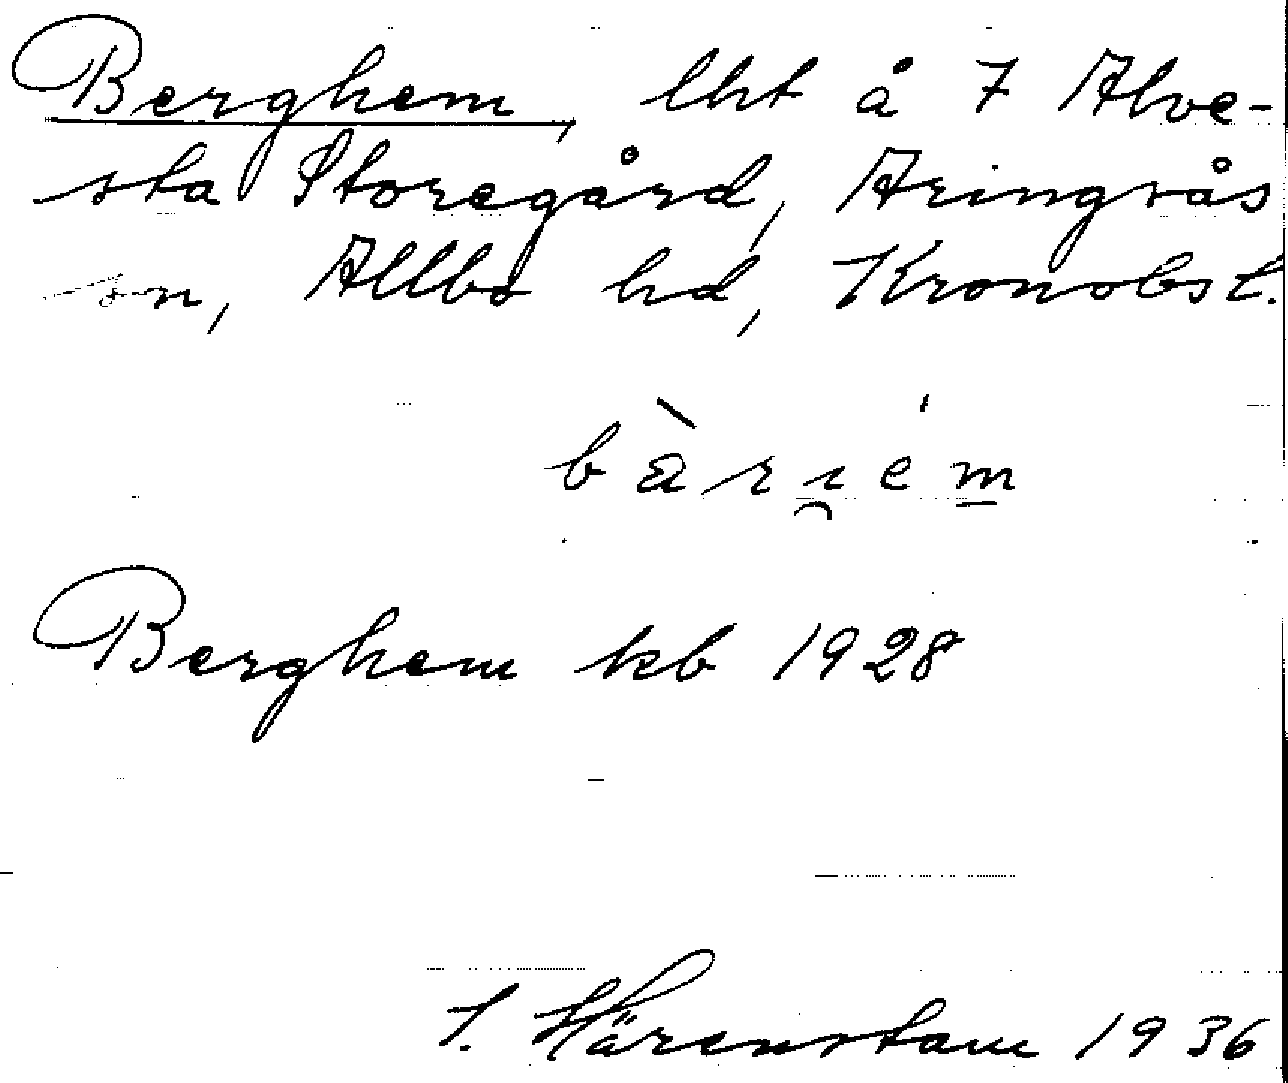 Berghem, lht å 7 Alve-
sta Storegård, Aringsås
sn, Allbo hd, Kronobs l.
bàriém
Berghem kb 1928
S. Härenstam 1936